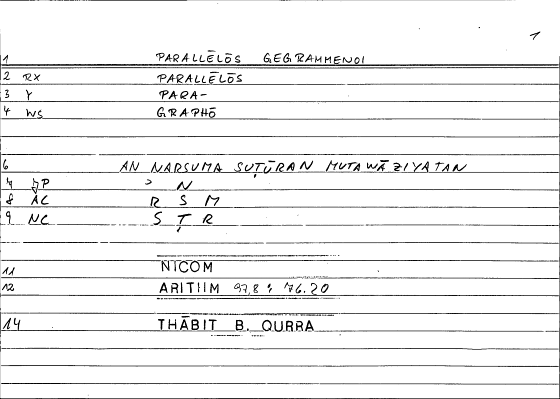 1
1 PARALLĒLŌS GEGRAMMENOI
2 RX PARALLĒLŌS
3 Y PARA-
4 WS GRAPHŌ
6 AN NARSUMA SUṬŪRAN MUTAWĀZIYATAN
P ʾ N
8 AC R S M
9 NC S Ṭ R
11 NICOM
12 ARITHM 97,8 : 76.20
14 THĀBIT B. QURRA